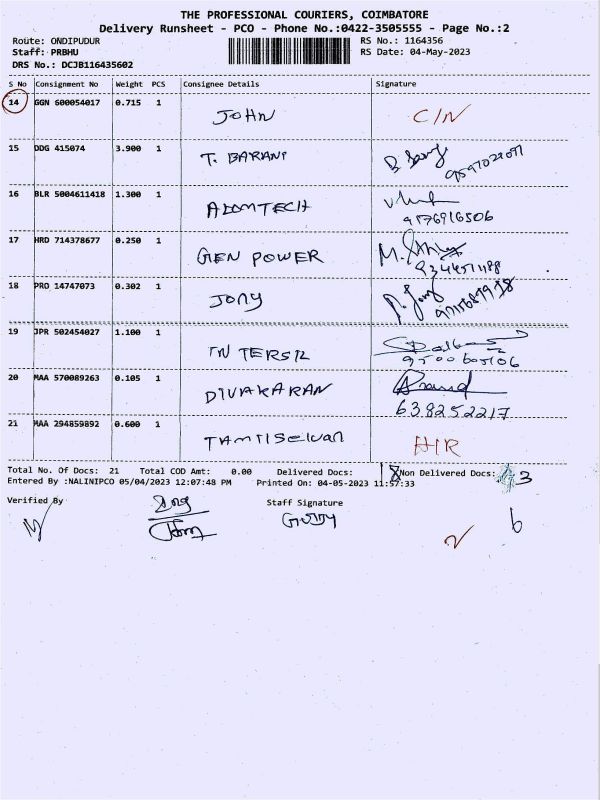 THE PROFESSIONAL COURIERS, COIMBATORE
Delivery Runsheet - PCO - Phone No.:0422-3505555 - Page No.:2
Route: ONDIPUDUR RS No.: 1164356
Staff: PRBHU RS Date: 04-May-2023
DRS No.: DCJB116435602
S No Consignment No Weight PCS Consignee Details Signature
14 GGN 600054017 0.715 1 JOHN C/N
15 DDG 415074 3.900 1 T. BARANI
16 BLR 5004611418 1.300 1 ADMTECH
9176916506
17 HRD 714378677 0.250 1 GEN POWER
18 PRO 14747073 0.302 1 JONY
19 JPR 502454027 1.100 1 INTERSIL
9500605106
20 MAA 570089263 0.105 1 DIVAKARAN
638252217
21 MAA 294859892 0.600 1 TAMTISELVAN
Total No. Of Docs: 21 Total COD Amt: 0.00 Delivered Docs: Non Delivered Docs: 3
Entered By :NALINIPCO 05/04/2023 12:07:48 PM Printed On: 04-05-2023 11:57:33
Verified By Staff Signature
6